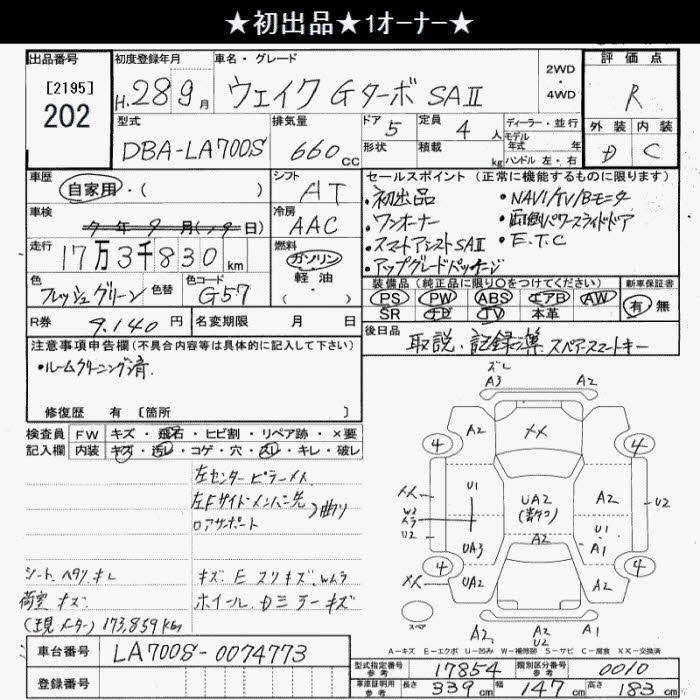 ★初出品★1オーナー★
出品番号
[2195]
202
初度登録年月
H.28年9月
車名・グレード
ウェイク Gターボ SAⅡ
2WD
・
4WD
評価点
R
外装 内装
D C
型式
DBA-LA700S
排気量
660cc
ドア 5
形状
定員 4人
積載 kg
ディーラー・並行
モデル
年式 年
ハンドル 左・右
車歴
自家用・( )
シフト
AT
セールスポイント (正常に機能するものに限ります)
・初出品
・ワンオーナー
・スマートアシストSAⅡ
・アップグレードパッケージ
・NAVI/TV/Bモニタ
・両側パワースライドドア
・E.T.C
車検
7年9月(19日)
冷房
AAC
走行
17万3千830km
燃料
ガソリン
軽油
( )
色
フレッシュグリーン
色替
色コード
G57
装備品(純正品に限り○をつけてください)
PS PW ABS エアB AW
SR ナビ TV 本革
新車保証書
有 無
R券 9.140円
名変期限 月 日
後日品 取説・記録簿.スペアースマートキー
注意事項申告欄(不具合内容等は具体的に記入して下さい)
・ルームクリーニング済.
修復歴 有 [箇所
検査員
記入欄
FW キズ・飛石・ヒビ割・リペア跡・×要
内装 キズ・汚レ・コゲ・穴・スレ・キレ・破レ
左センターピラーメス
左Fサイドメンバー先
ロアサポート
曲り
シート ヘタリ キレ
荷室 キズ
(現メーター)173,859km
キズ E スリキズ.Wムラ
ホイール.Dミラーキズ
ズレ
A3
A2
A2
××
4
4
××
U1
W3
ムラ
U2
UA2
A2
U2
U1
A2
UA3
A1
4
4
××
UA2
A2
スペア
A2
A2
U2
A1
A-キズ E-エクボ U-凹み W-補修跡 S-サビ C-腐食 ××-交換済
車台番号 LA700S-0074773
登録番号
型式指定番号
参考
17854
類別区分番号
参考
0010
車庫証明用
参考
長さ 339cm
幅 147cm
高さ 183cm